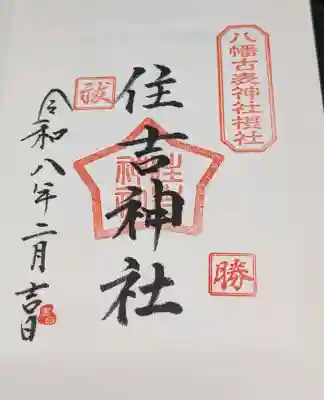 八幡古表神社摂社
祓
住吉神社
勝
令和八年二月吉日